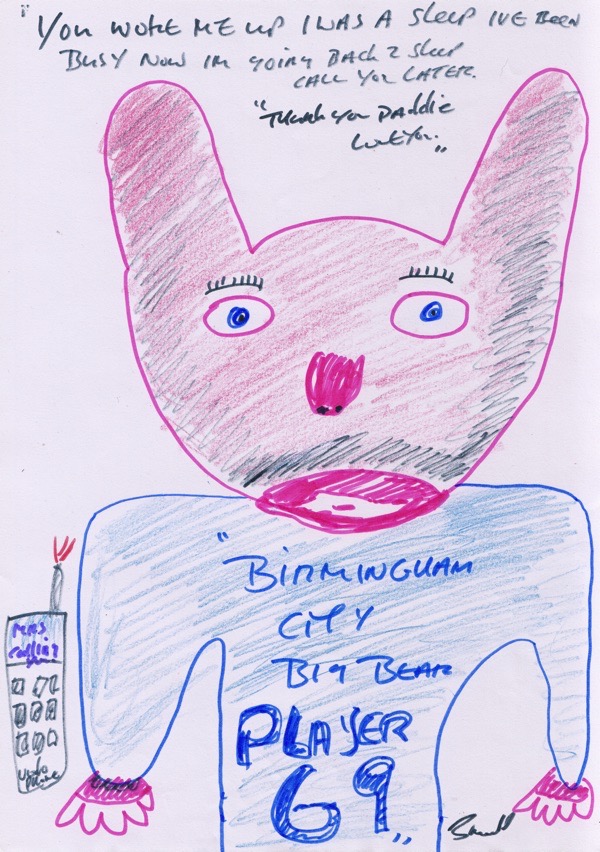 "YOU WOKE ME UP I WAS A SLEEP IVE BEEN
BUSY NOW IM GOING BACK 2 SLEEP
CALL YOU LATER.
"THANK YOU DADDIE
LOVE YOU."
"BIRMINGHAM
CITY
BIG BEAR
PLAYER
69"
MRS
CALLING